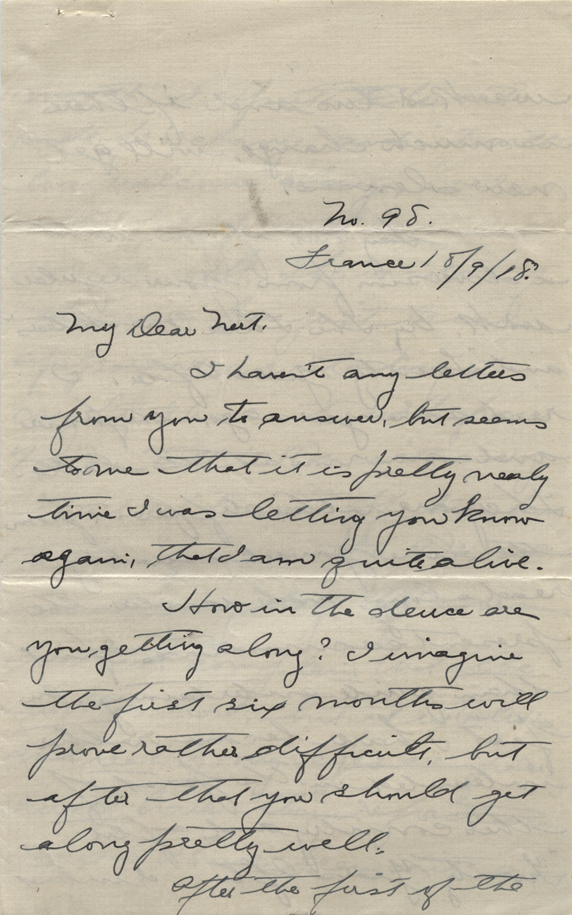 No. 98.
France 18/9/18.
My Dear Nert.
I haven't any letters
from you to answer, but seems
to me that it is pretty nealy
time I was letting you know
again, that I am quite alive.
How in the deuce are
you, getting along? I imagine
the first six months will
prove rather difficult, but
after that you should get
along pretty well.
After the first of the